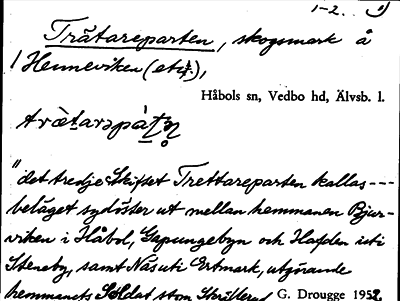 1-2..
Trätareparten, skogsmark å
Henneviken (etc.),
Håbols sn, Vedbo hd, Älvsb. l.
"det tredje Skiftet Trettareparten kallas ---
beläget sydöster ut mellan hemmanen Bjur-
viken i Håbol, Gapungebyn och Hafden uti
Steneby, samt Näs uti Ertmark, utgörande
hemmanets
G. Drougge 1952